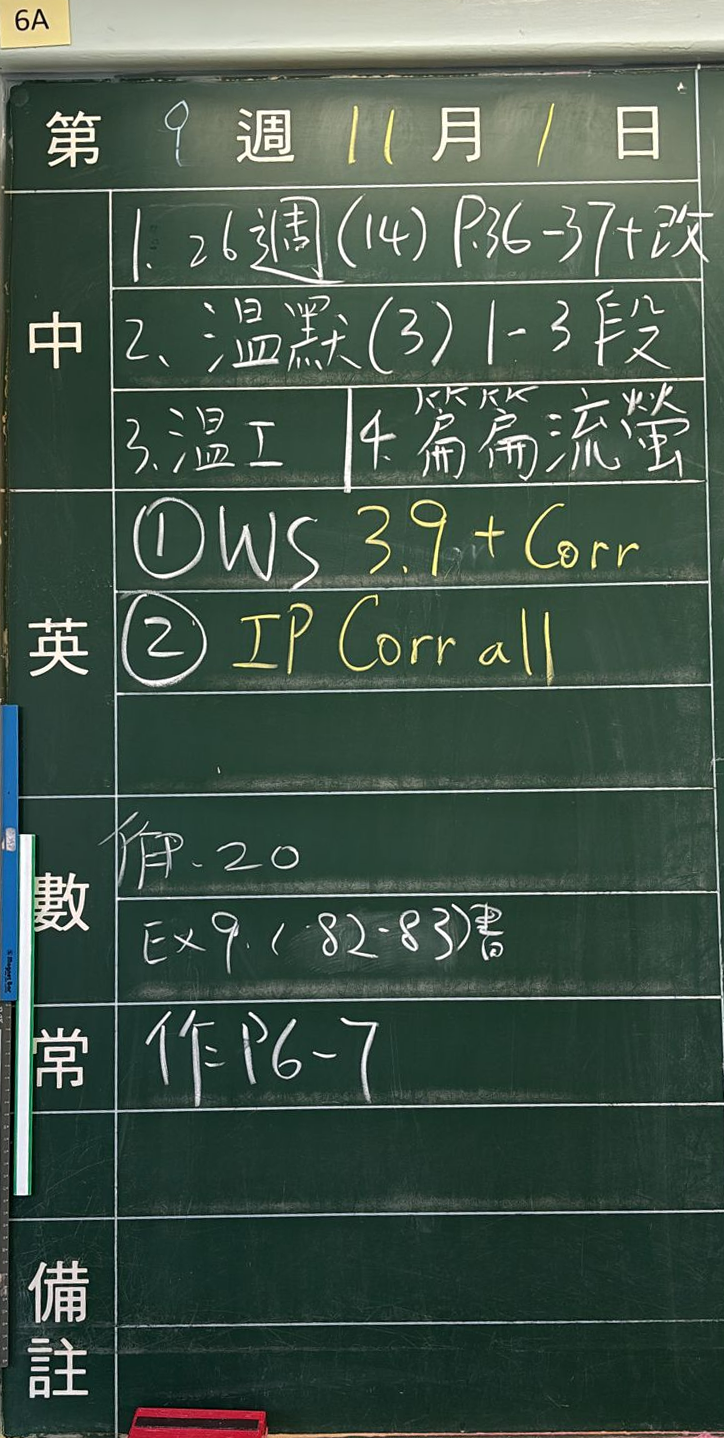 6A
第 9 週 11 月 1 日
中
1. 26週(14) P.36-37+改
2、溫默(3) 1-3段
3.溫工 4.篇篇流螢
英
①WS 3.9 + Corr
② IP Corr all
數
20
Ex 9. (82-83)書
常
作P6-7
備註